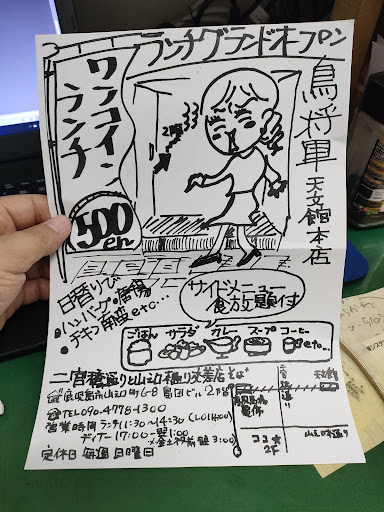 ランチグランドオープン
ワンコイン
ランチ
500en
鳥将軍
天文館本店
2階
日替り
ハンバーグ・唐揚
チキン南蛮 etc...
サイドメニュー
食放題付
ごはん サラダ カレー スープ コーヒー
etc...
二官橋通りと山之口
交差店そば
鹿児島市山之口町6-8
ビル2階
TEL 090-4778-1300
営業時間 ランチ11:30〜14:30 (L.O14:00)
ディナー17:00〜翌1:00
3:00
定休日 毎週 日曜日
ココ★
2F
山之口本通り